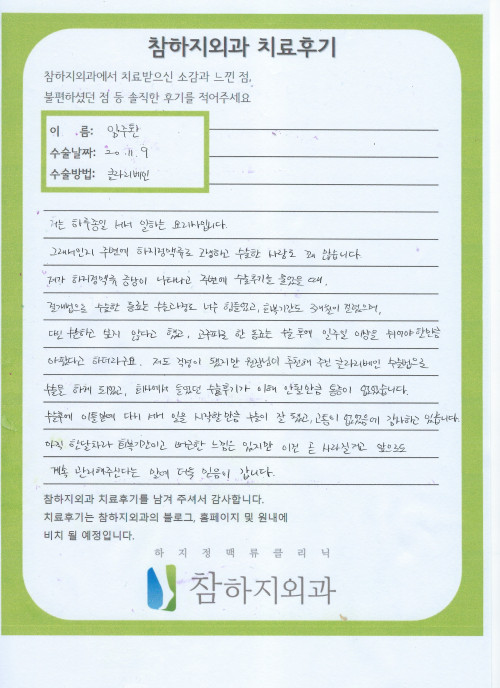 참하지외과 치료후기
참하지외과에서 치료받으신 소감과 느낀 점,
불편하셨던 점 등 솔직한 후기를 적어주세요
이 름: 임주환
수술날짜: 20.11.9
수술방법: 클라리베인
저는 하루종일 서서 일하는 요리사입니다.
그래서인지 주변에 하지정맥류로 고생하고 수술한 사람도 꽤 많습니다.
제가 하지정맥류 증상이 나타나고 주변에 수술후기를 들었을 때,
절개법으로 수술한 동료는 수술과정도 너무 힘들었고, 회복기간도 3개월이 걸렸으며,
다신 수술하고 싶지 않다고 했고, 고주파로 한 동료는 수술 후에 일주일 이상을 쉬어야 할만큼
아팠다고 하더라구요. 저도 걱정이 됐지만 원장님이 추천해 주신 클라리베인 수술법으로
수술을 하게 되었고, 회사에서 들었던 수술후기가 이해 안될만큼 통증이 없었습니다.
수술후에 이틀만에 다시 서서 일을 시작할만큼 수술이 잘 됐고, 고통이 없었음에 감사하고 있습니다.
아직 한달차라 회복기간이고 뻐근한 느낌은 있지만 이건 곧 사라질거고 앞으로도
계속 관리해주신다는 말에 더욱 믿음이 갑니다.
참하지외과 치료후기를 남겨 주셔서 감사합니다.
치료후기는 참하지외과의 블로그, 홈페이지 및 원내에
비치 될 예정입니다.
하지정맥류클리닉
참하지외과